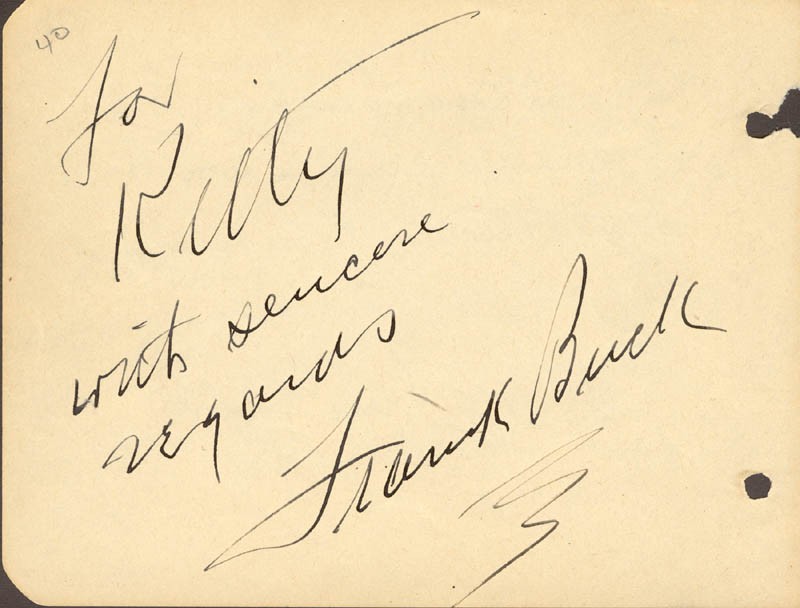 40
for
Kitty
with sincere
regards
Frank Buck